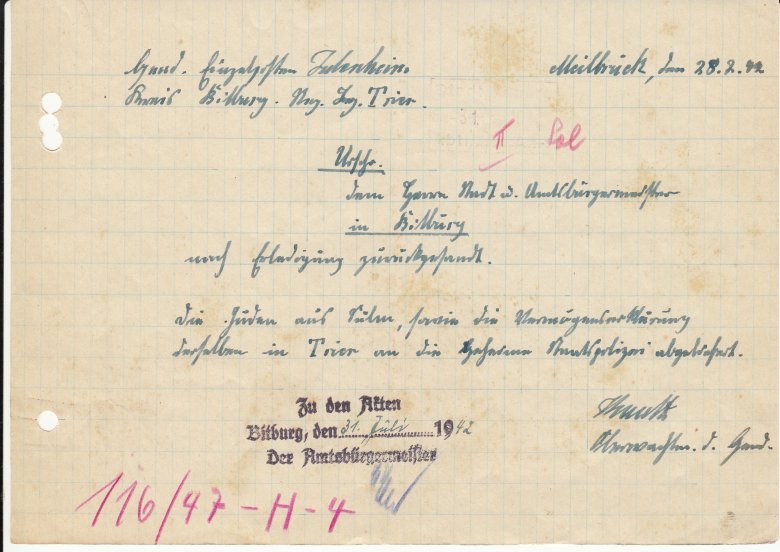 Gend. Einzelposten Idenheim. Meilbrück, den 28.7.42
Kreis Bitburg. Reg. Bez. Trier.
II Pol
Urschr.
dem Herrn Stadt u. Amtsbürgermeister
in Bitburg
nach Erledigung zurückgesandt.
Die Juden aus Sülm, sowie die Vermögenserklärung
derselben in Trier an die Geheime Staatspolizei abgeliefert.
Zu den Akten
Bitburg, den 31. Juli 1942
Der Amtsbürgermeister
Oberwachtm. d. Gend.
116/47-H-4